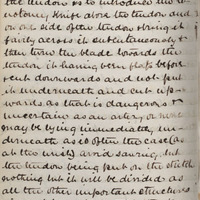 the tendon is to introduce the te
notomy knife above the tendon and
on one side of the tendon strong at
fairly across it subcutaneously &
then turn the blade towards the
tendon it having been flat before
cut downwards and not put
it underneath and cut up
wards as that is dangerous &
uncertain as an artery or nerve
may be lying immediately un
derneath as is often the case (as
at this wrist) avoid sawing, but
the tendon being put on the stretch
nothing but it will be divided as
all the other important structures